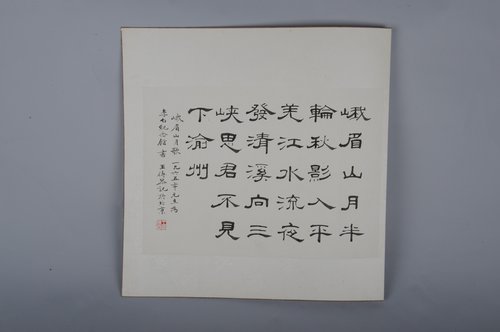 峨眉山月半
輪秋影入平
羌江水流夜
發清溪向三
峡思君不見
下渝州
峨眉山月歌 一九六五年元旦为
李白纪念館 書 王 记於北京